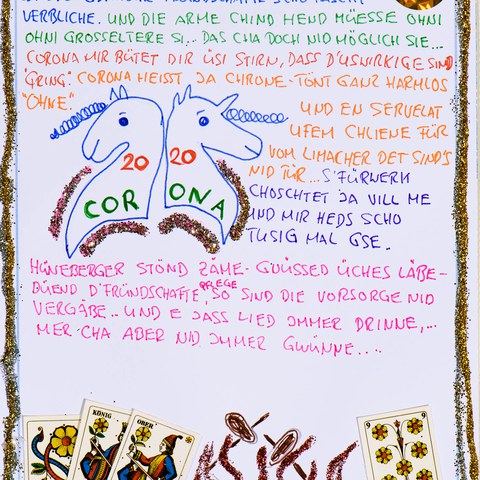 VERBLICHE. UND DIE ARME CHIND HEND MÜESSE OHNI
OHNI GROSSELTERE SI... DAS CHA DOCH NID MÖGLICH SIE...
CORONA MIR BÜTET DIR ÜSI STIRN, DASS D'USWIRKIGE SIND
"GRING". CORONA HEISST JA CHRONE-TÖNT GANZ HARMLOS
"OHNE"
UND EN SERVELAT
UFEM CHLIENE FÜR
VOM LIMACHER DET SIND'S
NID TÜR... S'FÜRWERK
CHOSCHTET JA VILL ME
UND MIR HEDS SCHO
TUSIG MAL GSE.
20 20
CORONA
HÜNEBERGER STÖND ZÄME-GNÜSSED ÜCHES LÄBE-
BÜEND D'FRÜNDSCHAFTE PFLEGE, SO SIND DIE VORSORGE NID
VERGÄBE.. UND E JASS LIED IMMER DRINNE,...
MER-CHA ABER NID IMMER GWÜNNE....
KÖNIG
OBER
9 9